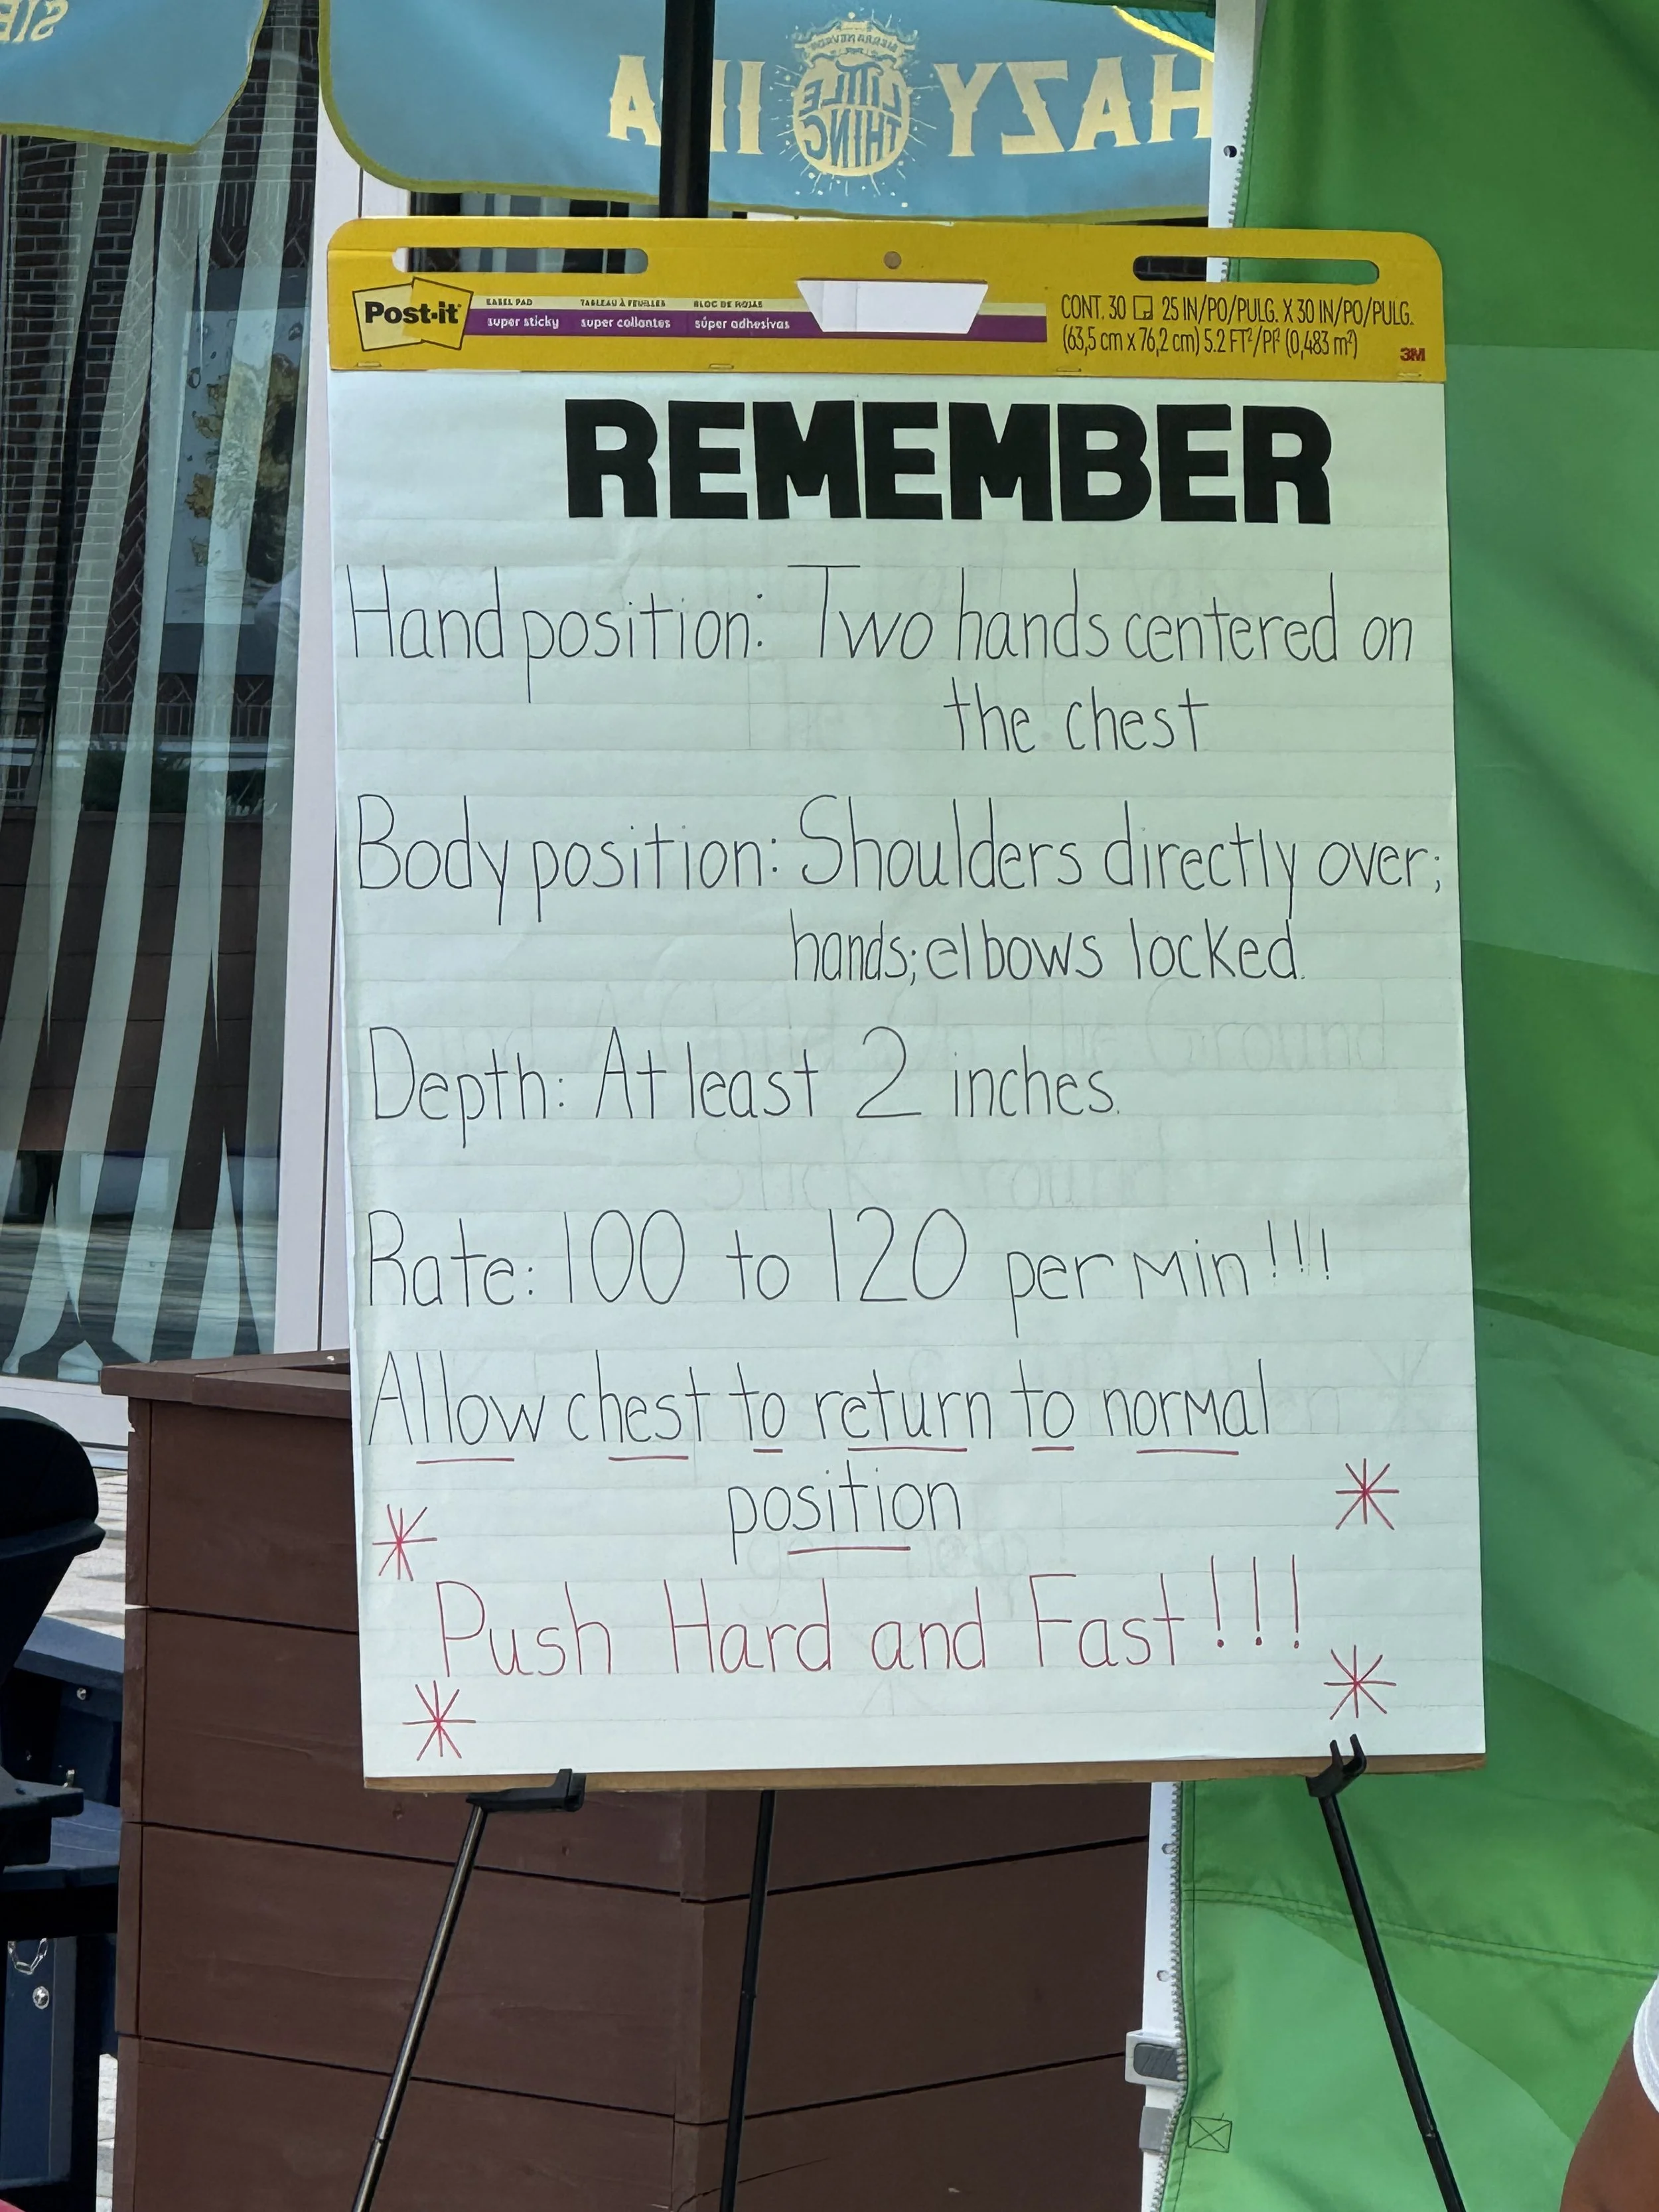 HAZY LITTLE THING IPA
SIERRA NEVADA
Post-it
EASEL PAD TABLEAU À FEUILLES BLOC DE HOJAS
super sticky super collantes súper adhesivas
CONT. 30 25 IN/PO/PULG. X 30 IN/PO/PULG.
(63,5 cm x 76,2 cm) 5.2 FT²/PI² (0,483 m²)
3M
REMEMBER
Hand position: Two hands centered on
the chest
Body position: Shoulders directly over;
hands; elbows locked.
Depth: At least 2 inches.
Rate: 100 to 120 per Min!!!
Allow chest to return to normal
position
Push Hard and Fast!!!